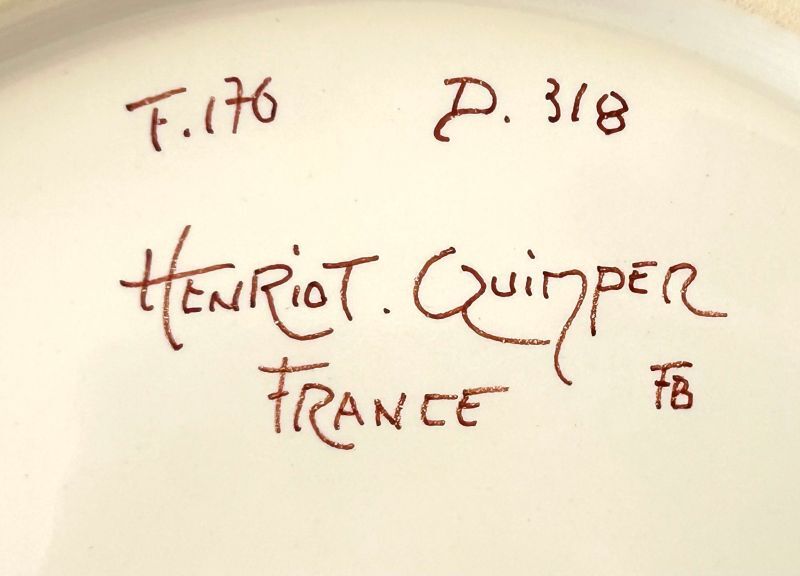 F.176 D.318
HENRIOT. QUIMPER
FRANCE FB